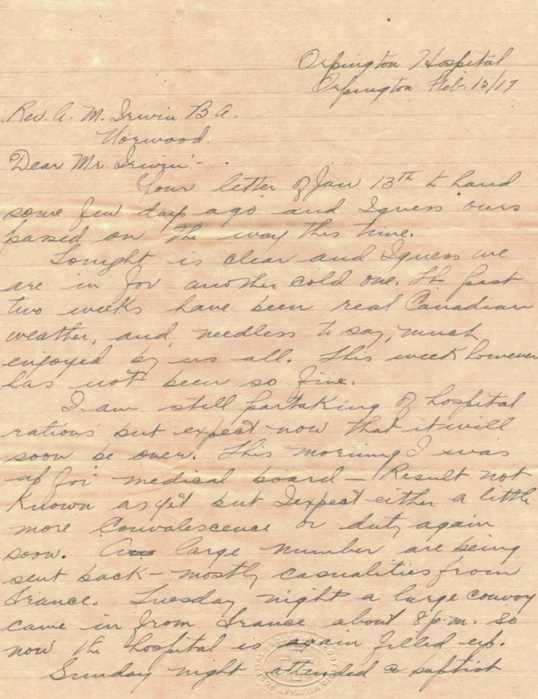 Orpington Hospital
Orpington Feb. 15/17
Rev. A. M. Irwin B A.
Norwood.
Dear Mr. Irwin:-
Your letter of Jan 13th to hand
some few days ago and I guess ours
passed on the way this time.
Tonight is clear and I guess we
are in for another cold one. The past
two weeks have been real Canadian
weather, and, needless to say, much
enjoyed by us all. This week however
has not been so fine.
I am still partaking of hospital
rations but expect now that it will
soon be over. This morning I was
up for medical board - Result not
known as yet but I expect either a little
more convalescence or duty again
soon. A large number are being
sent back - mostly casualities from
France. Tuesday night a large convoy
came in from France about 8 p.m. so
now the hospital is again filled up.
Sunday night attended a baptist